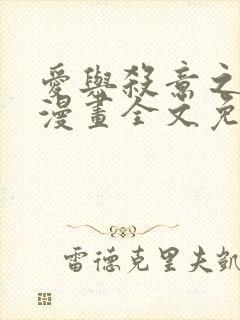 愛與殺意之
漫畫全文免
雷德克里夫凱